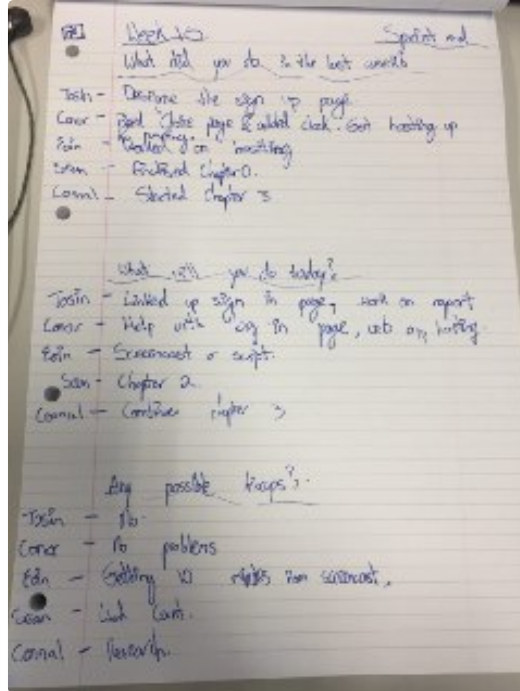 Week 15 Sprint
What did you do in the last week
Tosin - the sign up page.
Conor - page & added clock. Got hosting up
Eoin - Worked on hosting
Sean - Finished Chapter 0.
Conmal - Started Chapter 3
What will you do today?
Tosin - Linked up sign in page, work on report
Conor - Help with log in page, web hosting.
Eoin - Screencast or script.
Sean - Chapter 2
Conmal - Continue Chapter 3
Any possible
Tosin - No.
Conor - No problems
Eoin - Getting 10 screencast.
Sean - count.
Conmal - Research.